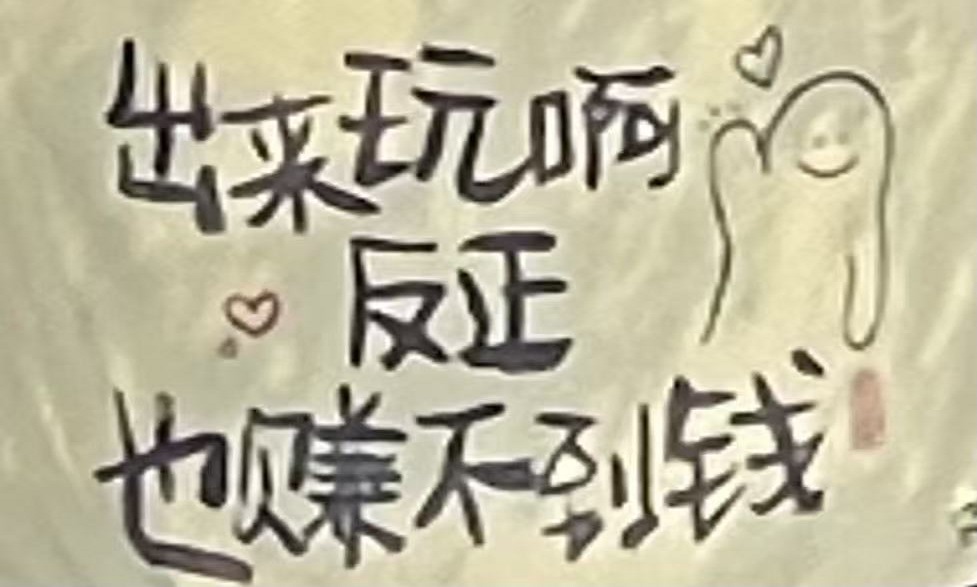 出来玩啊
反正
也赚不到钱